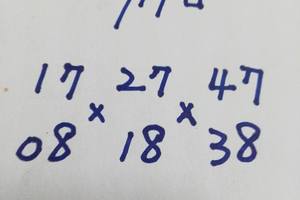 17 27 47
× ×
08 18 38